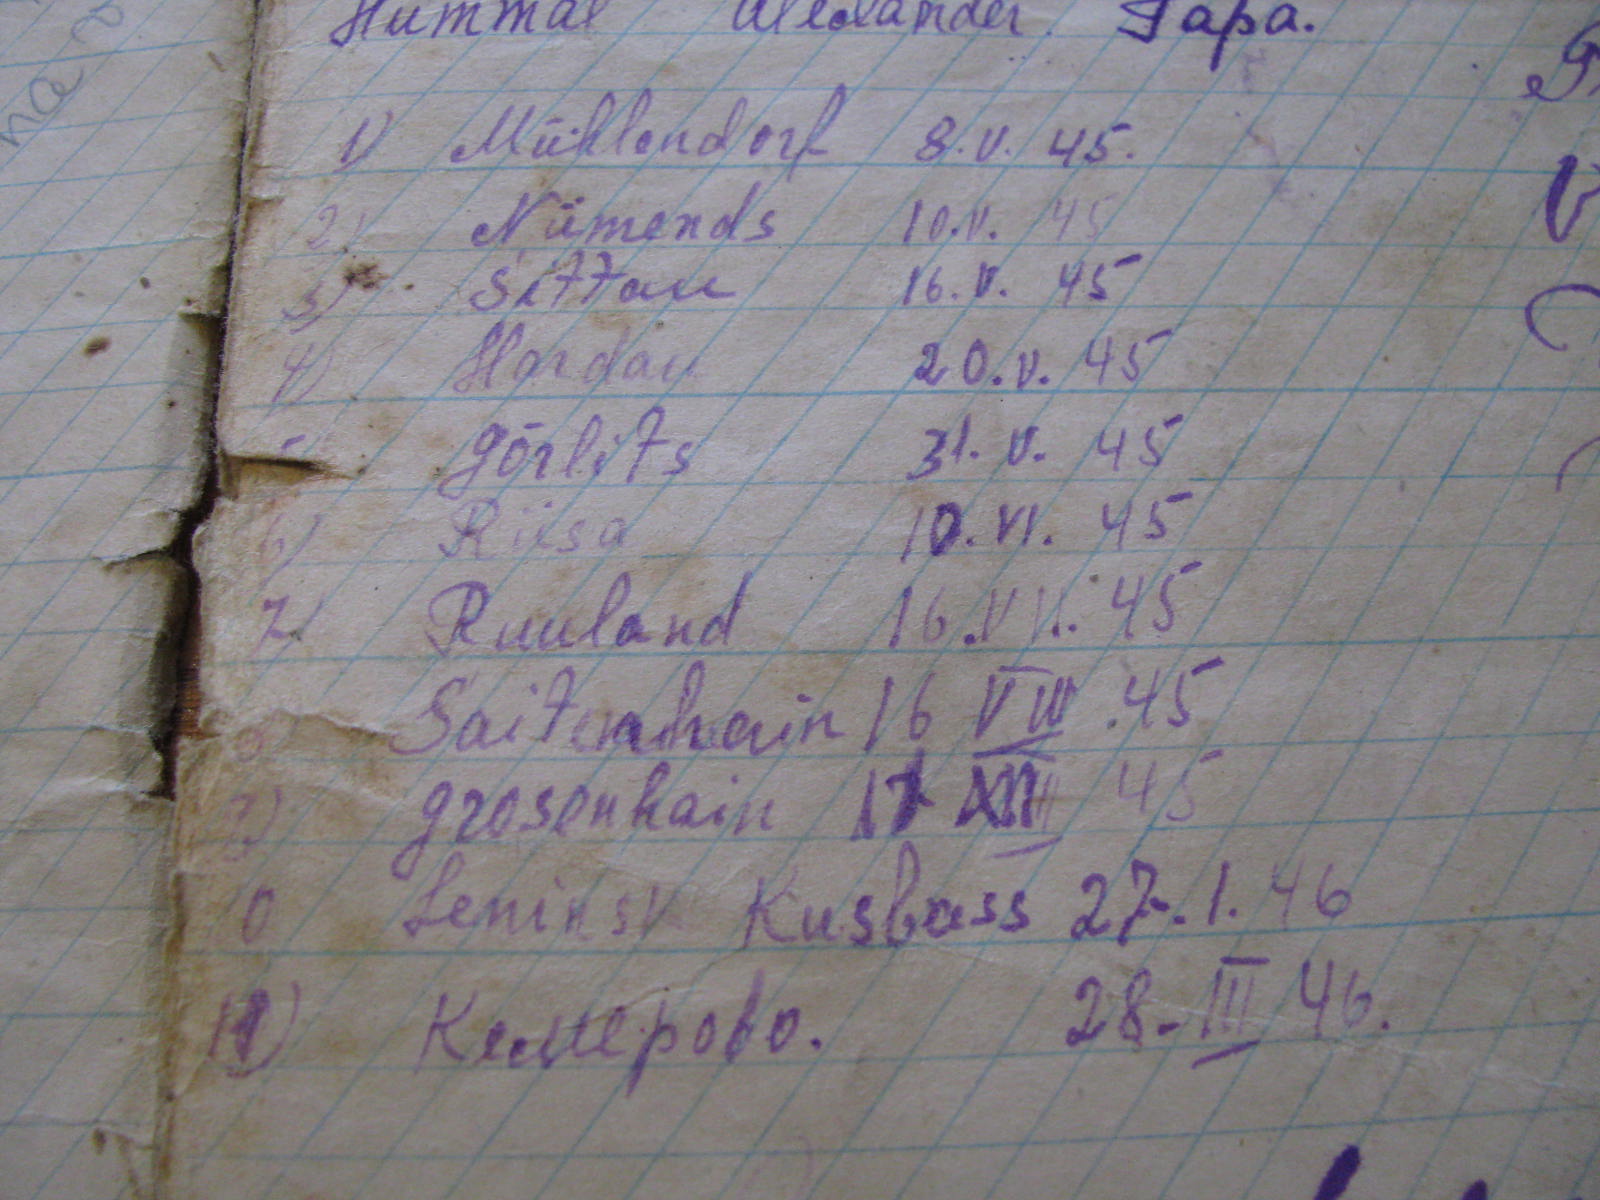 Hummal Alexander Papa.
1) Mühlendorf 8.V.45.
2) Nümends 10.V.45
3) Sittau 16.V.45
4) Hardau 20.V.45
Görlits 31.V.45
6) Riesa 10.VI.45
7) Ruuland 16.VI.45
Saitenhain 16 VIII.45
9) Grosenhain 17 45
0 Leninsk Kusbass 27.1.46
11) Кемерово. 28-III 46.